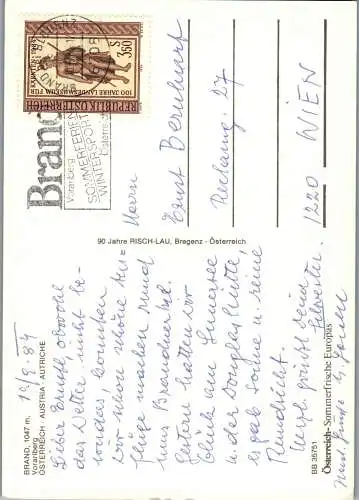 BRAND, 1047 m,
Vorarlberg
ÖSTERREICH - AUSTRIA - AUTRICHE
12/9. 84
Lieber Ernst! obwohl
das Wetter nicht be-
sonders, konnten
wir schon schöne Aus-
flüge machen rund
ums Brandnertal.
Gestern hatten wir
Glück am Lünersee
u. der Douglashütte,
es gab Sonne u. seine
Rundsicht.
Herzl. grüßt Dein
90 Jahre RISCH-LAU, Bregenz - Österreich
BB 35751
Österreich - Sommerfrische Europas
Brand
Vorarlberg
SOMMERFERIEN
WINTERSPORT
Österreich
REPUBLIK ÖSTERREICH
100 JAHRE LANDESMUSEUM FÜR
S
3.50
Herrn
Ernst Bernhauf
27
1220 WIEN